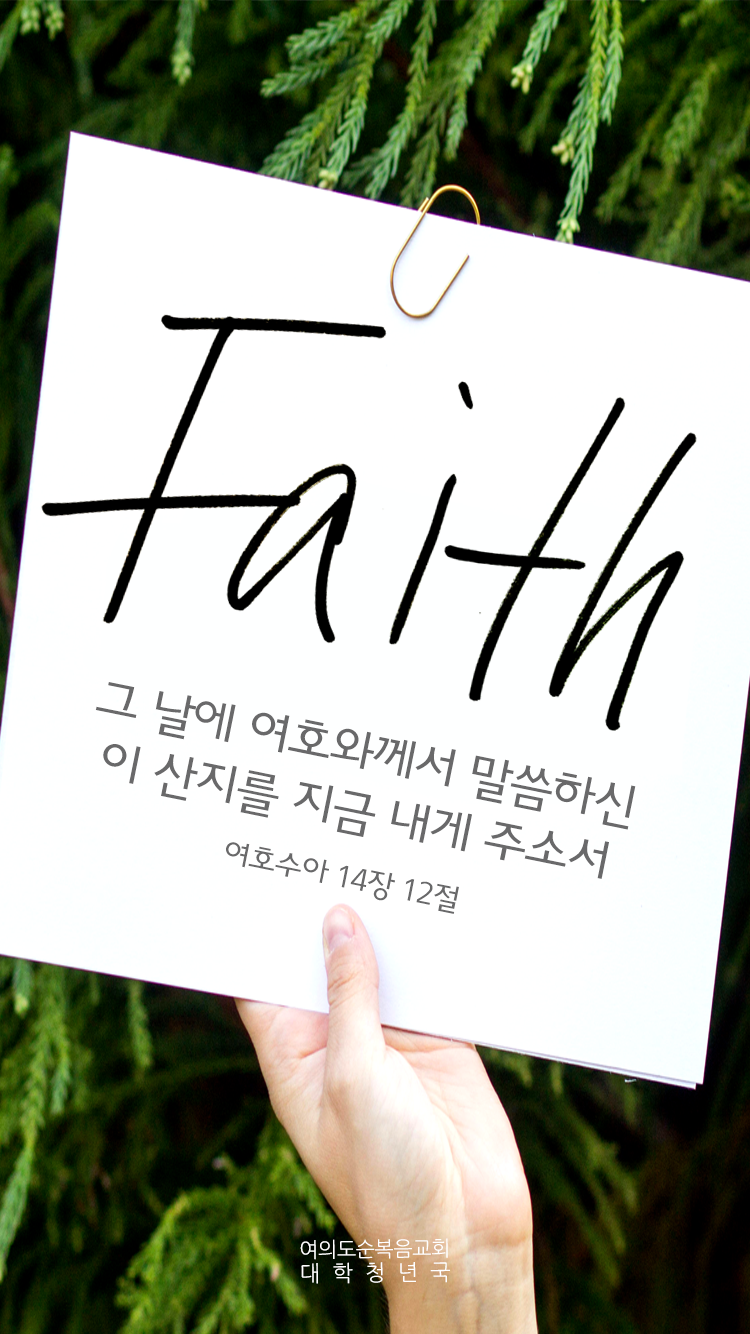 Faith
그 날에 여호와께서 말씀하신
이 산지를 지금 내게 주소서
여호수아 14장 12절
여의도순복음교회
대 학 청 년 국